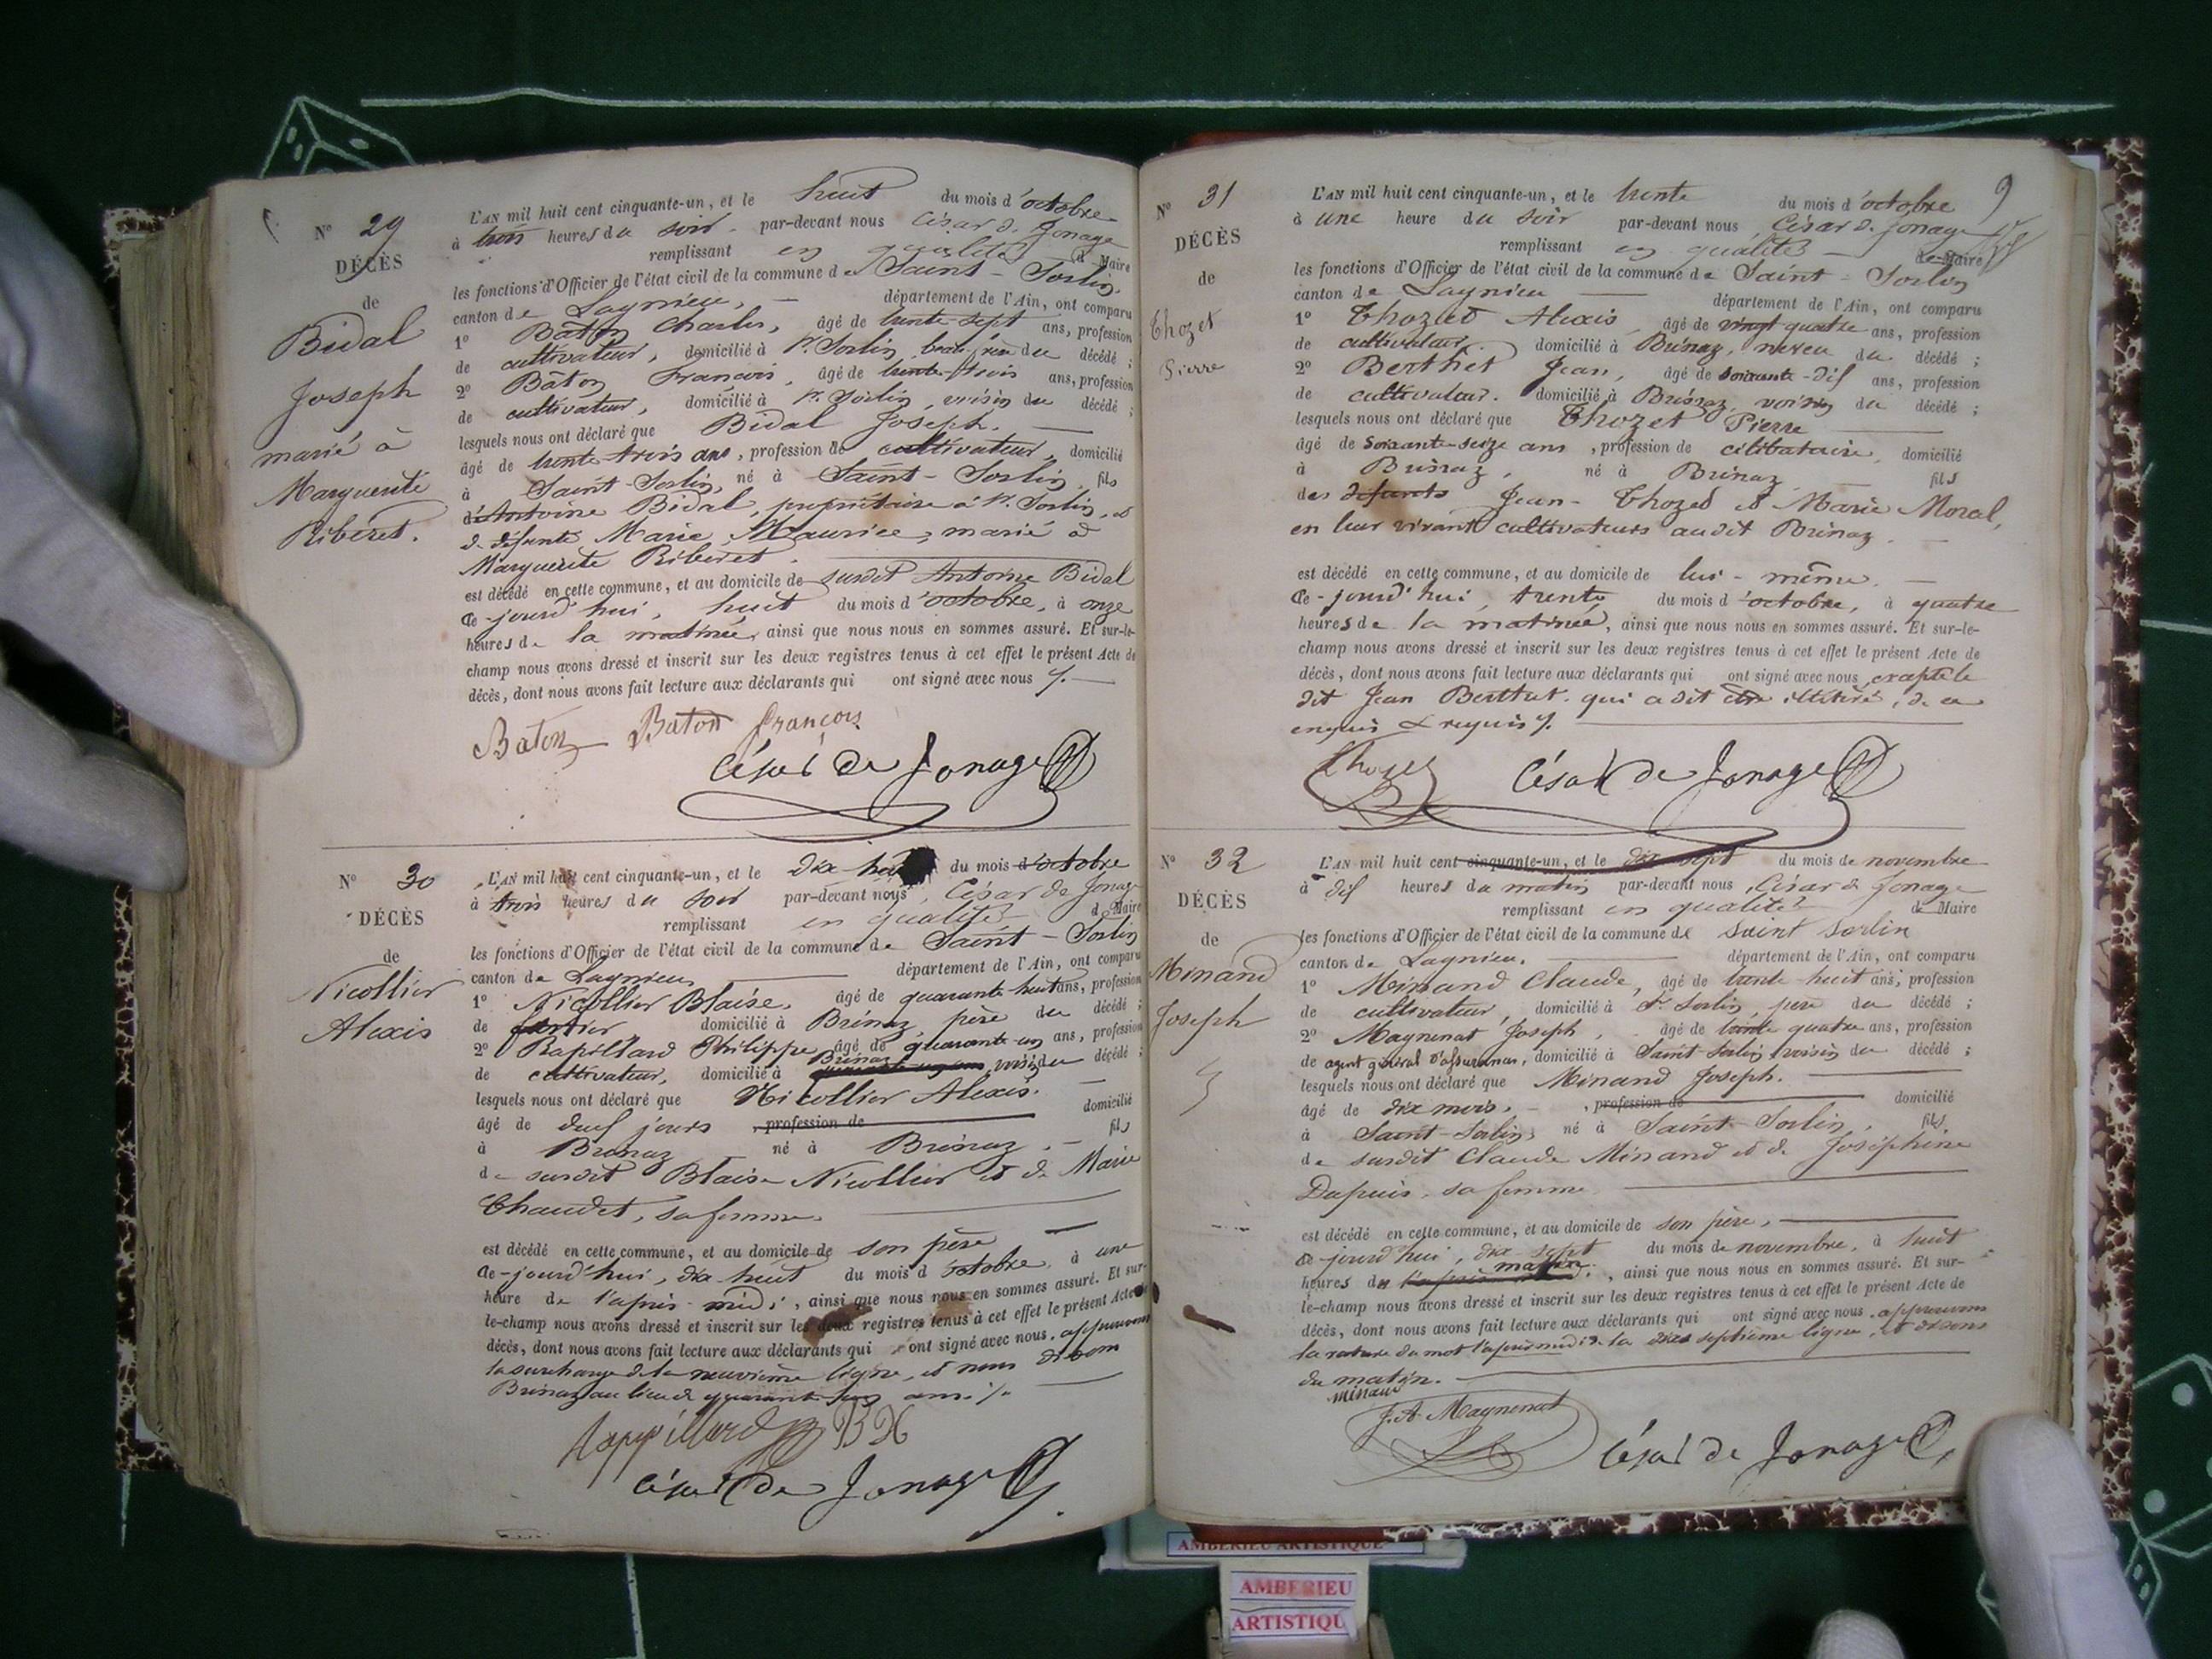 N° 29
DÉCÈS
de
Bidal
Joseph
marié à
Marguerite
Riberet.
L'AN mil huit cent cinquante-un, et le huit du mois d'octobre
à trois heures du soir par-devant nous César de Jonage
remplissant en qualité de Maire
les fonctions d'Officier de l'état civil de la commune de Saint-Sorlin,
canton de Lagnieu, département de l'Ain, ont comparu
1° Bâton Charles, âgé de trente-sept ans, profession
de cultivateur, domicilié à St. Sorlin, beau-frère du décédé ;
2° Bâton François, âgé de trente-trois ans, profession
de cultivateur, domicilié à St. Sorlin, voisin du décédé ;
lesquels nous ont déclaré que Bidal Joseph.
âgé de trente-trois ans, profession de cultivateur, domicilié
à Saint-Sorlin, né à Saint-Sorlin, fils
d'Antoine Bidal, propriétaire à St. Sorlin, et
de défunte Marie Maurice, marié à
Marguerite Riberet.
est décédé en cette commune, et au domicile de susdit Antoine Bidal
ce-jourd'hui, huit du mois d'octobre, à onze
heures de la matinée, ainsi que nous nous en sommes assuré. Et sur-le-
champ nous avons dressé et inscrit sur les deux registres tenus à cet effet le présent Acte de
décès, dont nous avons fait lecture aux déclarants qui ont signé avec nous ./.
Baton Baton françois
César de Jonage
N° 30
DÉCÈS
de
Nicollier
Alexis
L'AN mil huit cent cinquante-un, et le dix-huit du mois d'octobre
à trois heures du soir par-devant nous, César de Jonage
remplissant en qualité de Maire
les fonctions d'Officier de l'état civil de la commune de Saint-Sorlin
canton de Lagnieu département de l'Ain, ont comparu
1° Nicollier Blaise, âgé de quarante-huit ans, profession
de domicilié à Brénaz, père du décédé ;
2° Rapillard Philippe, âgé de quarante-un ans, profession
de cultivateur, domicilié à Brénaz, voisin du décédé ;
lesquels nous ont déclaré que Nicollier Alexis.
âgé de neuf jours, profession de domicilié
à Brénaz né à Brénaz. fils
de susdit Blaise Nicollier et de Marie
Chaudet, sa femme.
est décédé en cette commune, et au domicile de son père
ce-jourd'hui, dix-huit du mois d'octobre, à une
heure de l'après-midi, ainsi que nous nous en sommes assuré. Et sur-
le-champ nous avons dressé et inscrit sur les deux registres tenus à cet effet le présent Acte de
décès, dont nous avons fait lecture aux déclarants qui ont signé avec nous. approuvons
la surcharge de la neuvième ligne, et nous disons
Brénaz au lieu de quarante-un ans ./.
Rappillard BN
César de Jonage
9
N° 31
DÉCÈS
de
Thozet
Pierre
L'AN mil huit cent cinquante-un, et le trente du mois d'octobre
à une heure du soir par-devant nous, César de Jonage
remplissant en qualité de Maire
les fonctions d'Officier de l'état civil de la commune de Saint-Sorlin
canton de Lagnieu département de l'Ain, ont comparu
1° Thozet Alexis, âgé de vingt-quatre ans, profession
de cultivateur. domicilié à Brénaz, neveu du décédé ;
2° Berthet Jean, âgé de soixante-dix ans, profession
de cultivateur. domicilié à Brénaz, voisin du décédé ;
lesquels nous ont déclaré que Thozet Pierre
âgé de soixante-seize ans, profession de célibataire, domicilié
à Brénaz, né à Brénaz fils
des défunts Jean-Thozet et Marie Moral,
en leur vivant cultivateurs audit Brénaz.
est décédé en cette commune, et au domicile de lui-même.
ce-jourd'hui, trente du mois d'octobre, à quatre
heures de la matinée, ainsi que nous nous en sommes assuré. Et sur-le-
champ nous avons dressé et inscrit sur les deux registres tenus à cet effet le présent Acte de
décès, dont nous avons fait lecture aux déclarants qui ont signé avec nous excepté le
dit Jean Berthet. qui a dit être illitéré, de ce
enquis & requis ./.
Thozet César de Jonage
N° 32
DÉCÈS
de
Minand
Joseph
L'AN mil huit cent cinquante-un, et le dix-sept du mois de novembre
à dix heures du matin par-devant nous, César de Jonage
remplissant en qualité de Maire
les fonctions d'Officier de l'état civil de la commune de Saint Sorlin
canton de Lagnieu. département de l'Ain, ont comparu
1° Minand Claude, âgé de trente-huit ans, profession
de cultivateur, domicilié à St. Sorlin, père du décédé ;
2° Maynenat Joseph, âgé de trente quatre ans, profession
de agent général d'assurances, domicilié à Saint-Sorlin, voisin du décédé ;
lesquels nous ont déclaré que Minand Joseph.
âgé de dix mois. , profession de domicilié
à Saint-Sorlin, né à Saint-Sorlin, fils
de susdit Claude Minand et de Joséphine
Dupuis, sa femme
est décédé en cette commune, et au domicile de son père,
ce-jourd'hui, dix-sept du mois de novembre, à huit
heures du matin, ainsi que nous nous en sommes assuré. Et sur-
le-champ nous avons dressé et inscrit sur les deux registres tenus à cet effet le présent Acte de
décès, dont nous avons fait lecture aux déclarants qui ont signé avec nous. approuvons
la rature du mot l'après midi de la dix septième ligne, et disons
du matin.
minand
J. A. Maynenat
César de Jonage
AMBERIEU ARTISTIQUE
AMBERIEU
ARTISTIQU